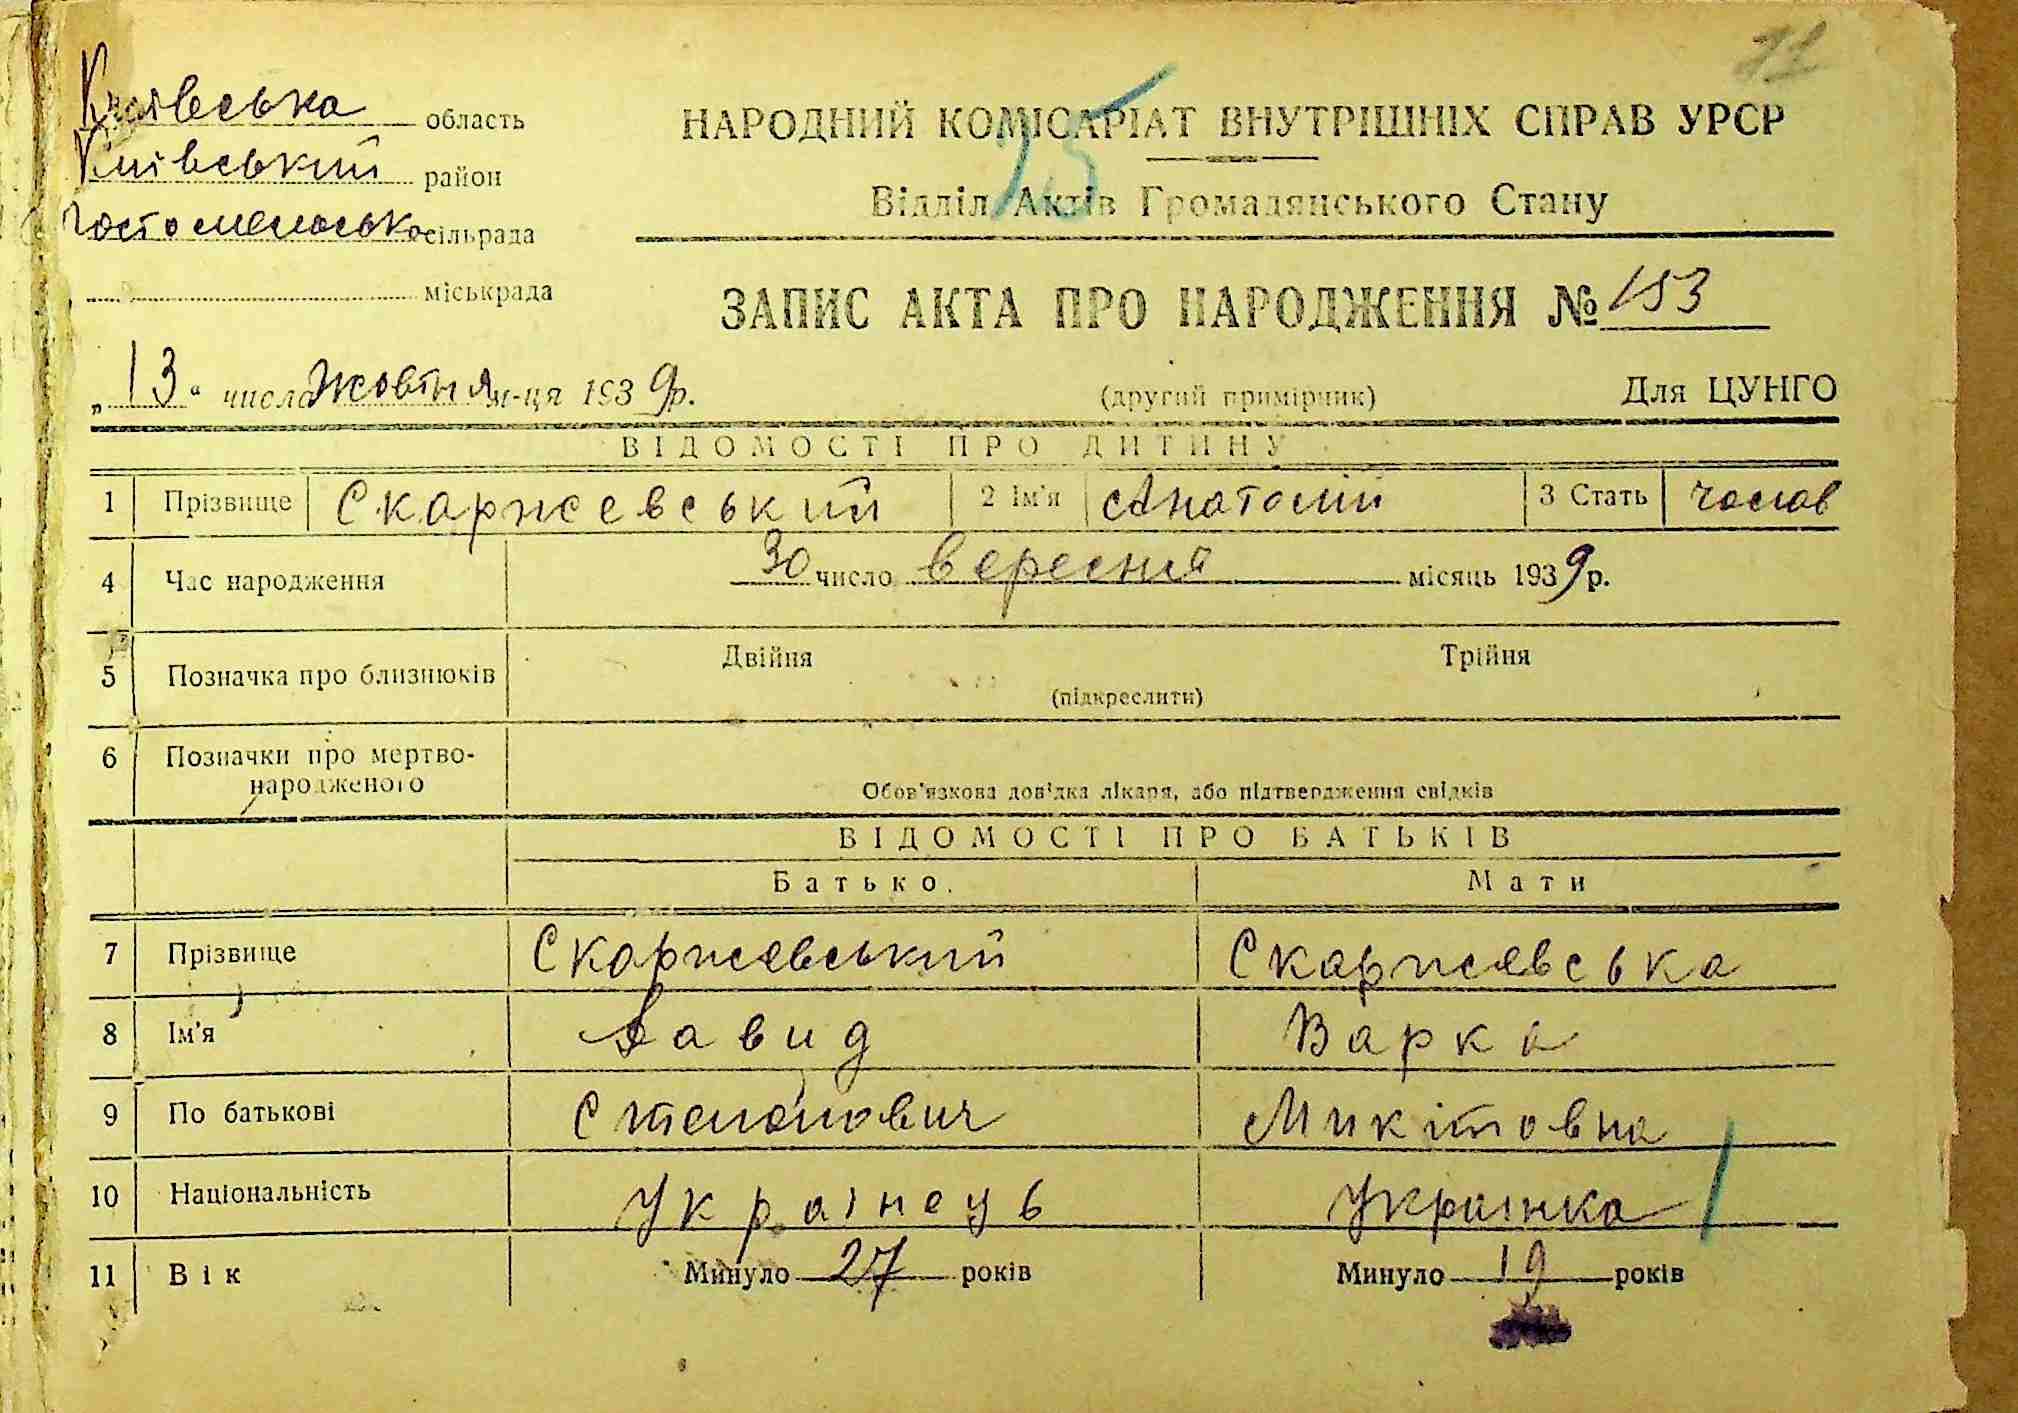 71
Київська область
Київський район
Гостомельська сільрада
міськрада
НАРОДНИЙ КОМІСАРІАТ ВНУТРІШНІХ СПРАВ УРСР
75
Відділ Актів Громадянського Стану
ЗАПИС АКТА ПРО НАРОДЖЕННЯ № 153
„13“ числа жовтня м-ця 1939р.
(другий примірник)
Для ЦУНГО
ВІДОМОСТІ ПРО ДИТИНУ
1 Прізвище Скаржевський 2 Ім'я Анатолій 3 Стать чолов
4 Час народження 30 число вересня місяць 1939р.
5 Позначка про близнюків Двійня Трійня
(підкреслити)
6 Позначки про мертво-
народженого
Обов'язкова довідка лікаря, або підтвердження свідків
ВІДОМОСТІ ПРО БАТЬКІВ
Батько. Мати
7 Прізвище Скаржевський Скаржевська
8 Ім'я Давид Варка
9 По батькові Степанович Микітовна
10 Національність Українець Українка
11 Вік Минуло 27 років Минуло 19 років